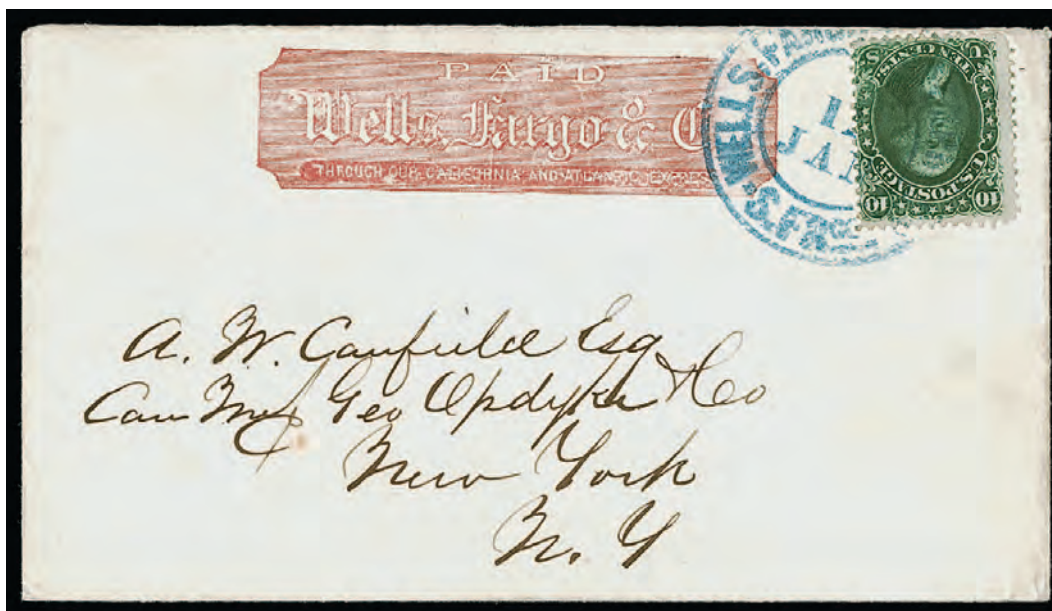 PAID
Wells, Fargo & C
THROUGH OUR CALIFORNIA AND ATLANTIC EXPRESS
JAN
S. FR
TEN CENTS
U.S. POSTAGE
10 10
U S
A. W. Canfield Esq
Care Mess Geo Opdyke & Co
New York
N. Y